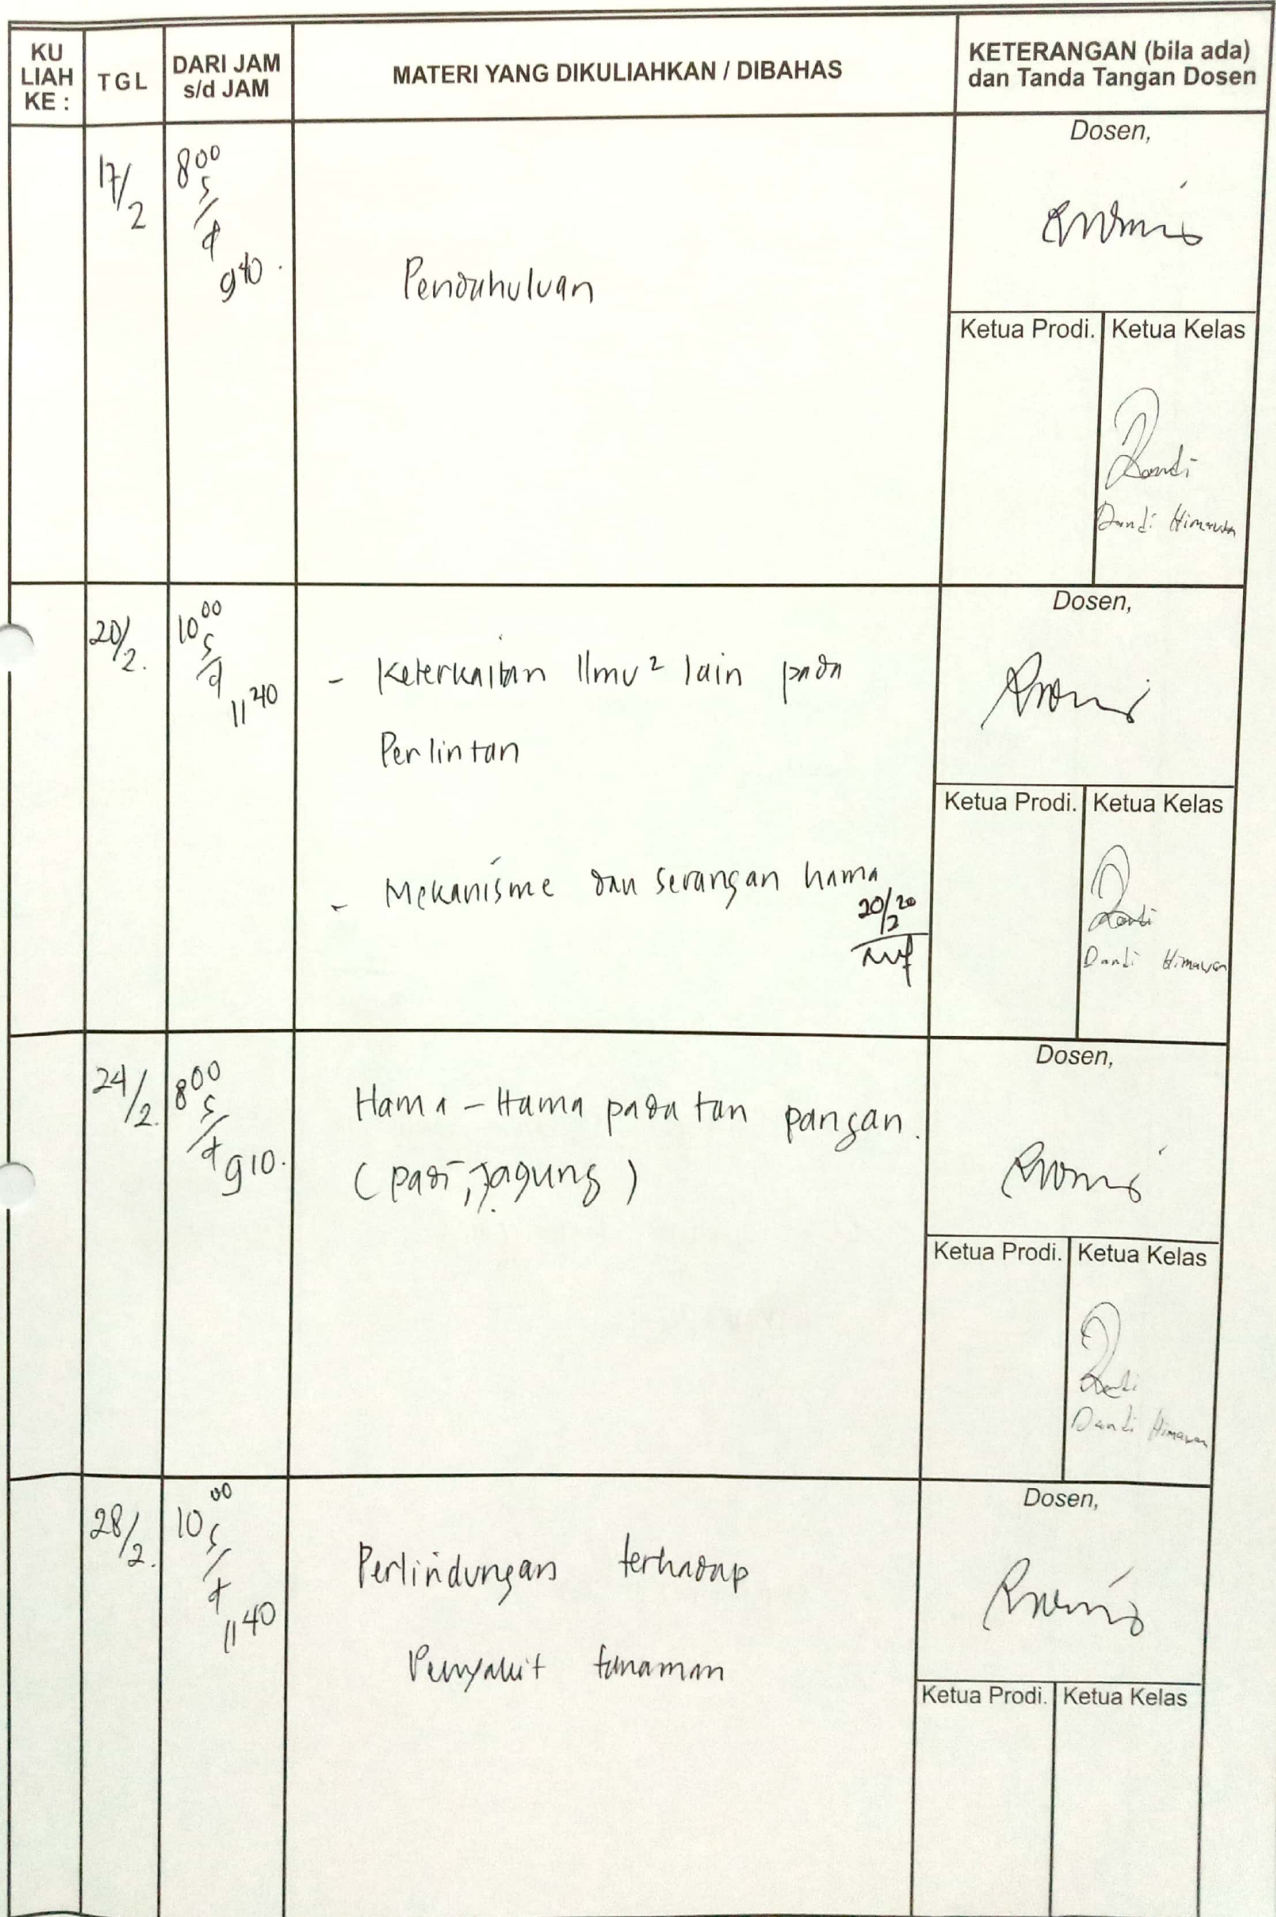 KU
LIAH
KE :
TGL
DARI JAM
s/d JAM
MATERI YANG DIKULIAHKAN / DIBAHAS
KETERANGAN (bila ada)
dan Tanda Tangan Dosen
17/2
8⁰⁰
s/d
9⁴⁰.
Pendahuluan
Dosen,
Ketua Prodi.
Ketua Kelas
Dandi
Dandi Himawan
20/2.
10⁰⁰
s/d
11⁴⁰
- Keterkaitan Ilmu² lain pada
Perlintan
- Mekanisme dan serangan hama
20/2 20
Dosen,
Ketua Prodi.
Ketua Kelas
Dandi
Dandi Himawan
24/2.
8⁰⁰
s/d
9¹⁰.
Hama - Hama pada tan pangan.
(padi, Jagung)
Dosen,
Ketua Prodi.
Ketua Kelas
Dandi
Dandi Himawan
28/2.
10⁰⁰
s/d
11⁴⁰
Perlindungan terhadap
Penyakit tanaman
Dosen,
Ketua Prodi.
Ketua Kelas